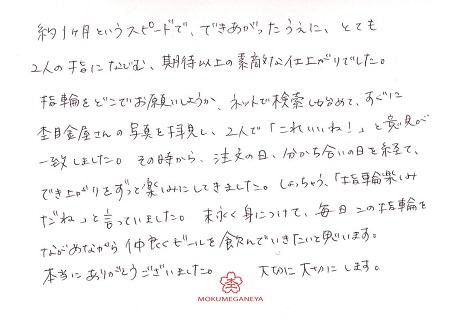 約1ヶ月というスピードで、できあがったうえに、とても
2人の指になじむ、期待以上の素敵な仕上がりでした。
指輪をどこでお願いしようか、ネットで検索し始めて、すぐに
杢目金屋さんの写真を拝見し、2人で「これいいね!」と意見が
一致しました。その時から、注文の日、分かち合いの日を経て、
でき上がりをずっと楽しみにしてきました。しょっちゅう、「指輪楽しみ
だね」と言っていました。末永く身につけて、毎日この指輪を
ながめながら仲良くビールを飲んでいきたいと思います。
本当にありがとうございました。 大切に大切にします。
MOKUMEGANEYA